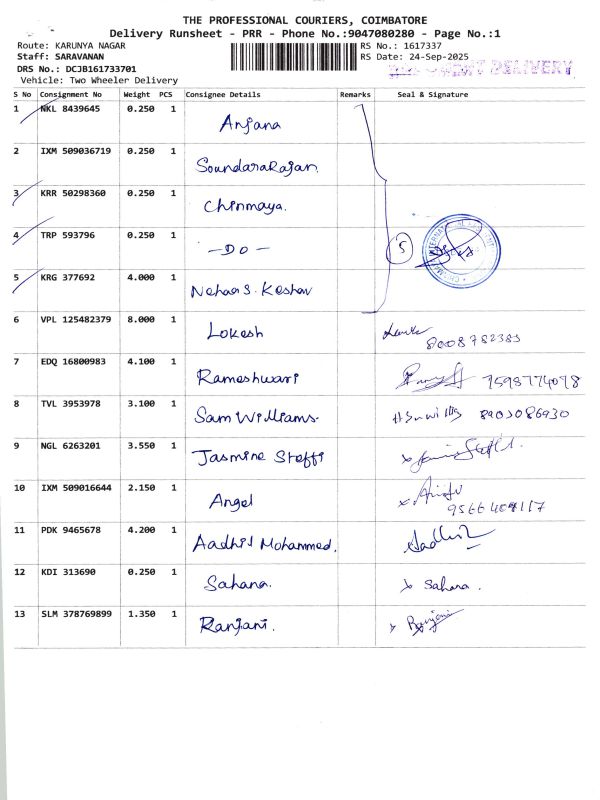 THE PROFESSIONAL COURIERS, COIMBATORE
Delivery Runsheet - PRR - Phone No.:9047080280 - Page No.:1
Route: KARUNYA NAGAR RS No.: 1617337
Staff: SARAVANAN RS Date: 24-Sep-2025
DRS No.: DCJB161733701 DELIVERY
Vehicle: Two Wheeler Delivery
S No Consignment No Weight PCS Consignee Details Remarks Seal & Signature
1 NKL 8439645 0.250 1 Anjana
2 IXM 509036719 0.250 1 Soundararajan
3 KRR 50298360 0.250 1 Chinmaya.
4 TRP 593796 0.250 1 -DO- 5
5 KRG 377692 4.000 1 Nehaa S. Keshav
6 VPL 125482379 8.000 1 Lokesh
8008782383
7 EDQ 16800983 4.100 1 Rameshwari 7598774078
8 TVL 3953978 3.100 1 Sam Williams. 8903086930
9 NGL 6263201 3.550 1 Jasmine Steffi
10 IXM 509016644 2.150 1 Angel
11 PDK 9465678 4.200 1 Aadhil Mohammed.
12 KDI 313690 0.250 1 Sahana. x Sahana.
13 SLM 378769899 1.350 1 Ranjani. x Ranjani